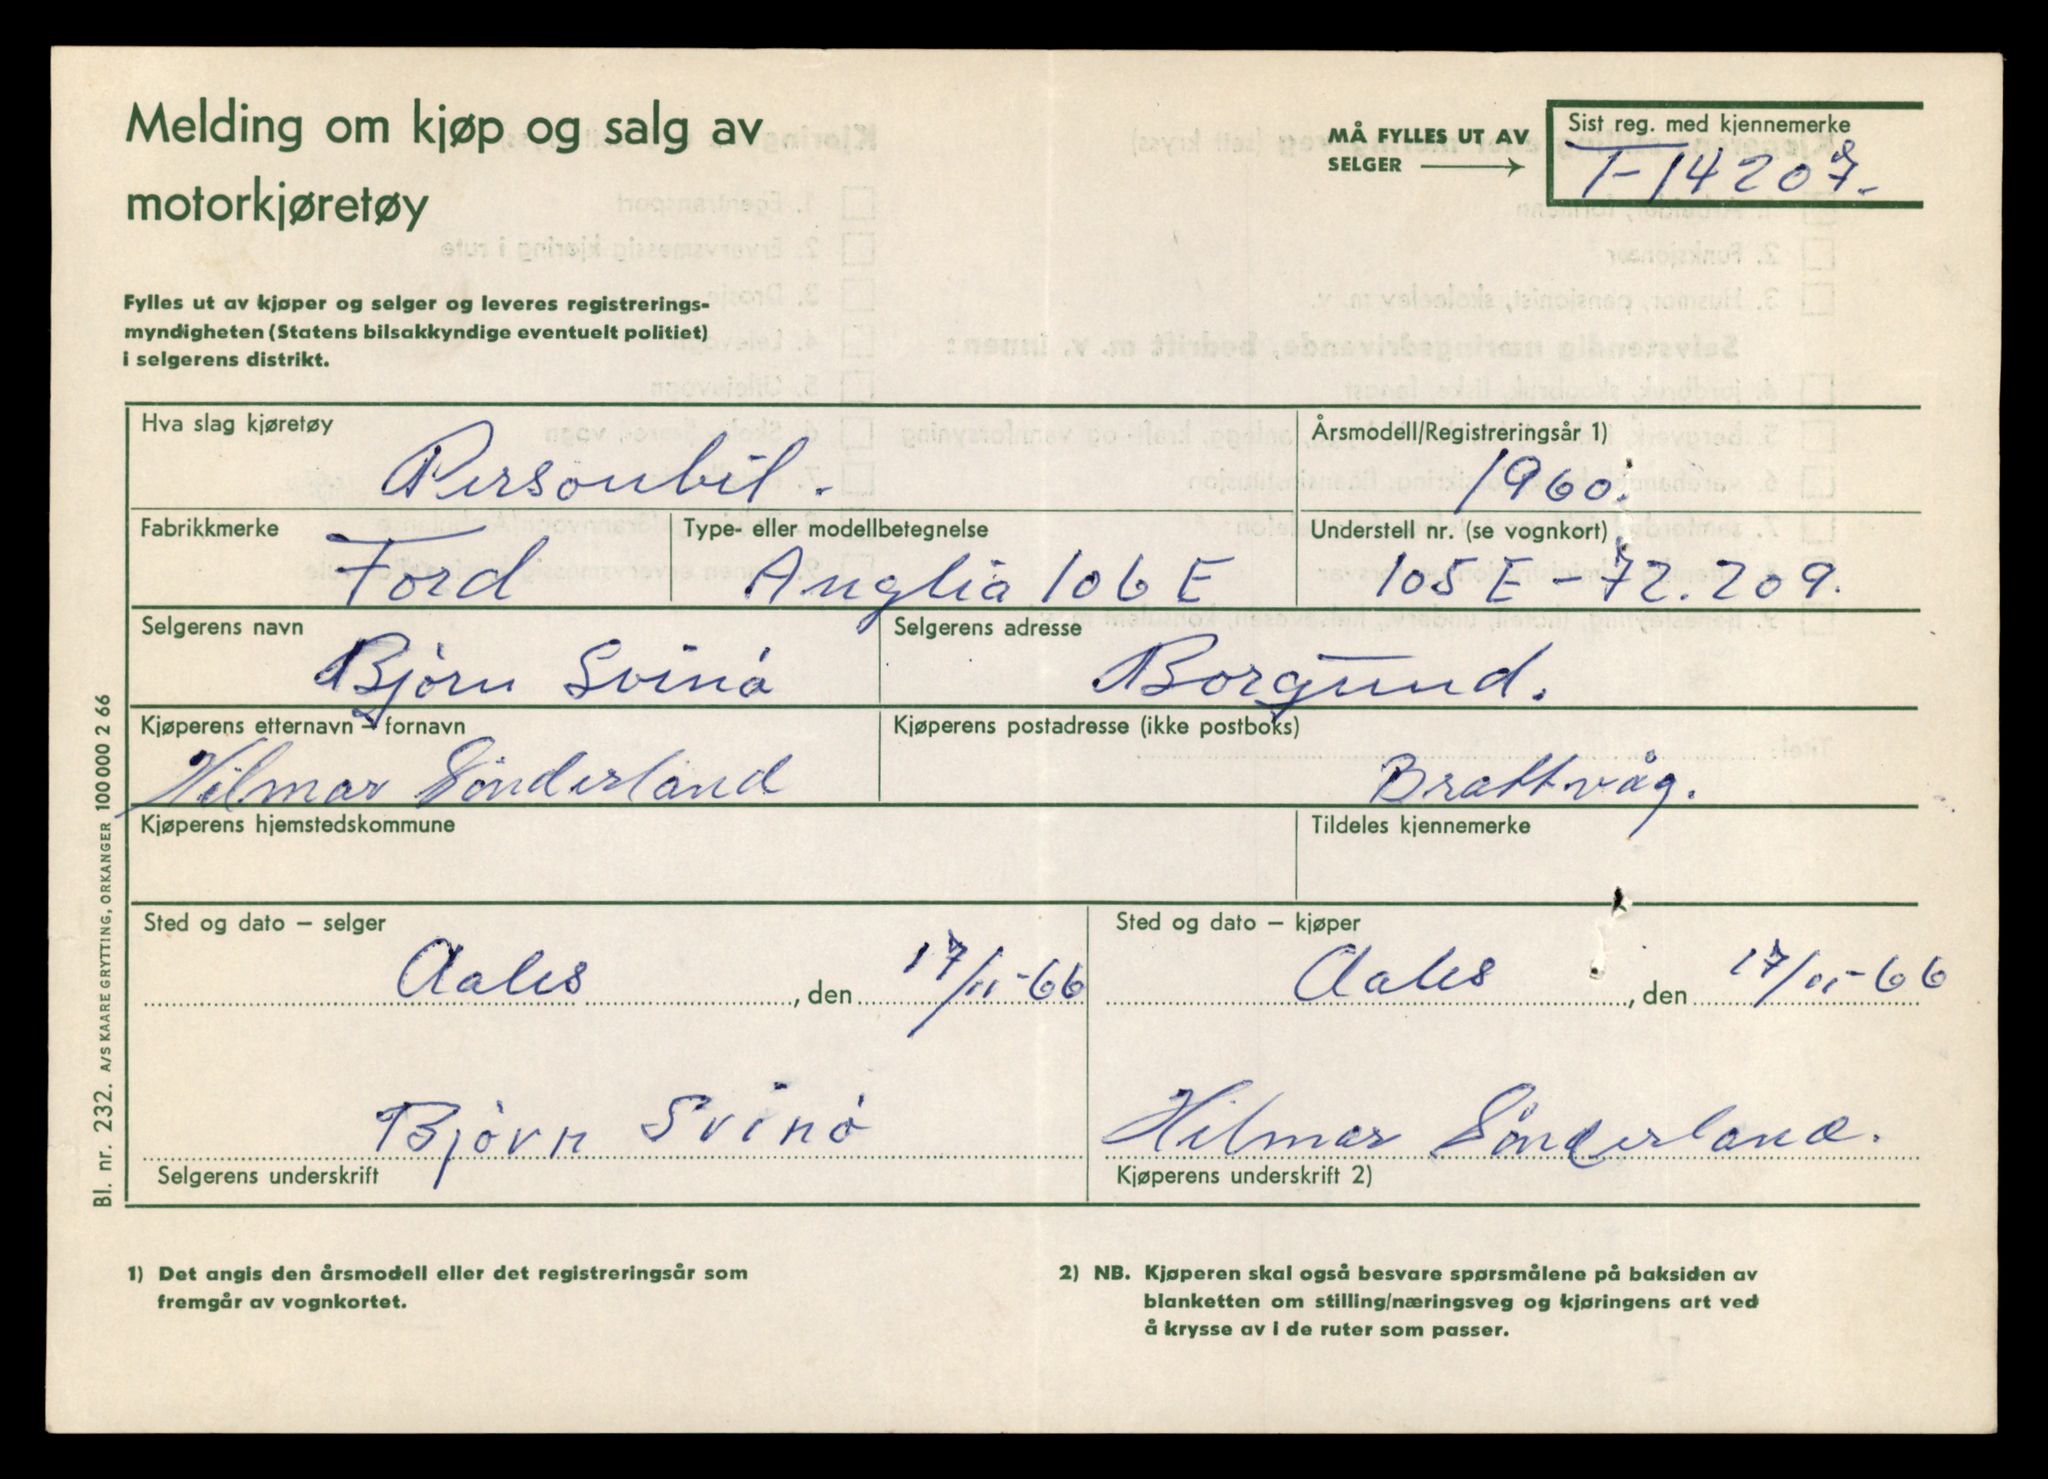 Melding om kjøp og salg av
motorkjøretøy
MÅ FYLLES UT AV
SELGER
Sist reg. med kjennemerke
T-14207.
Fylles ut av kjøper og selger og leveres registrerings-
myndigheten (Statens bilsakkyndige eventuelt politiet)
i selgerens distrikt.
Hva slag kjøretøy
Personbil.
Årsmodell/Registreringsår 1)
1960.
Fabrikkmerke
Ford
Type- eller modellbetegnelse
Anglia 106 E
Understell nr. (se vognkort)
105E-72.209.
Selgerens navn
Bjørn Svinø
Selgerens adresse
Borgund.
Kjøperens etternavn – fornavn
Hilmar Sønderland
Kjøperens postadresse (ikke postboks)
Brattvåg.
Kjøperens hjemstedskommune
Tildeles kjennemerke
Sted og dato – selger
Aales, den 17/11-66
Sted og dato – kjøper
Aales, den 17/11-66
Bjørn Svinø
Selgerens underskrift
Hilmar Sønderland.
Kjøperens underskrift 2)
1) Det angis den årsmodell eller det registreringsår som
fremgår av vognkortet.
2) NB. Kjøperen skal også besvare spørsmålene på baksiden av
blanketten om stilling/næringsveg og kjøringens art ved
å krysse av i de ruter som passer.
Bl. nr. 232. A/S KAARE GRYTTING, ORKANGER 100 000 2 66